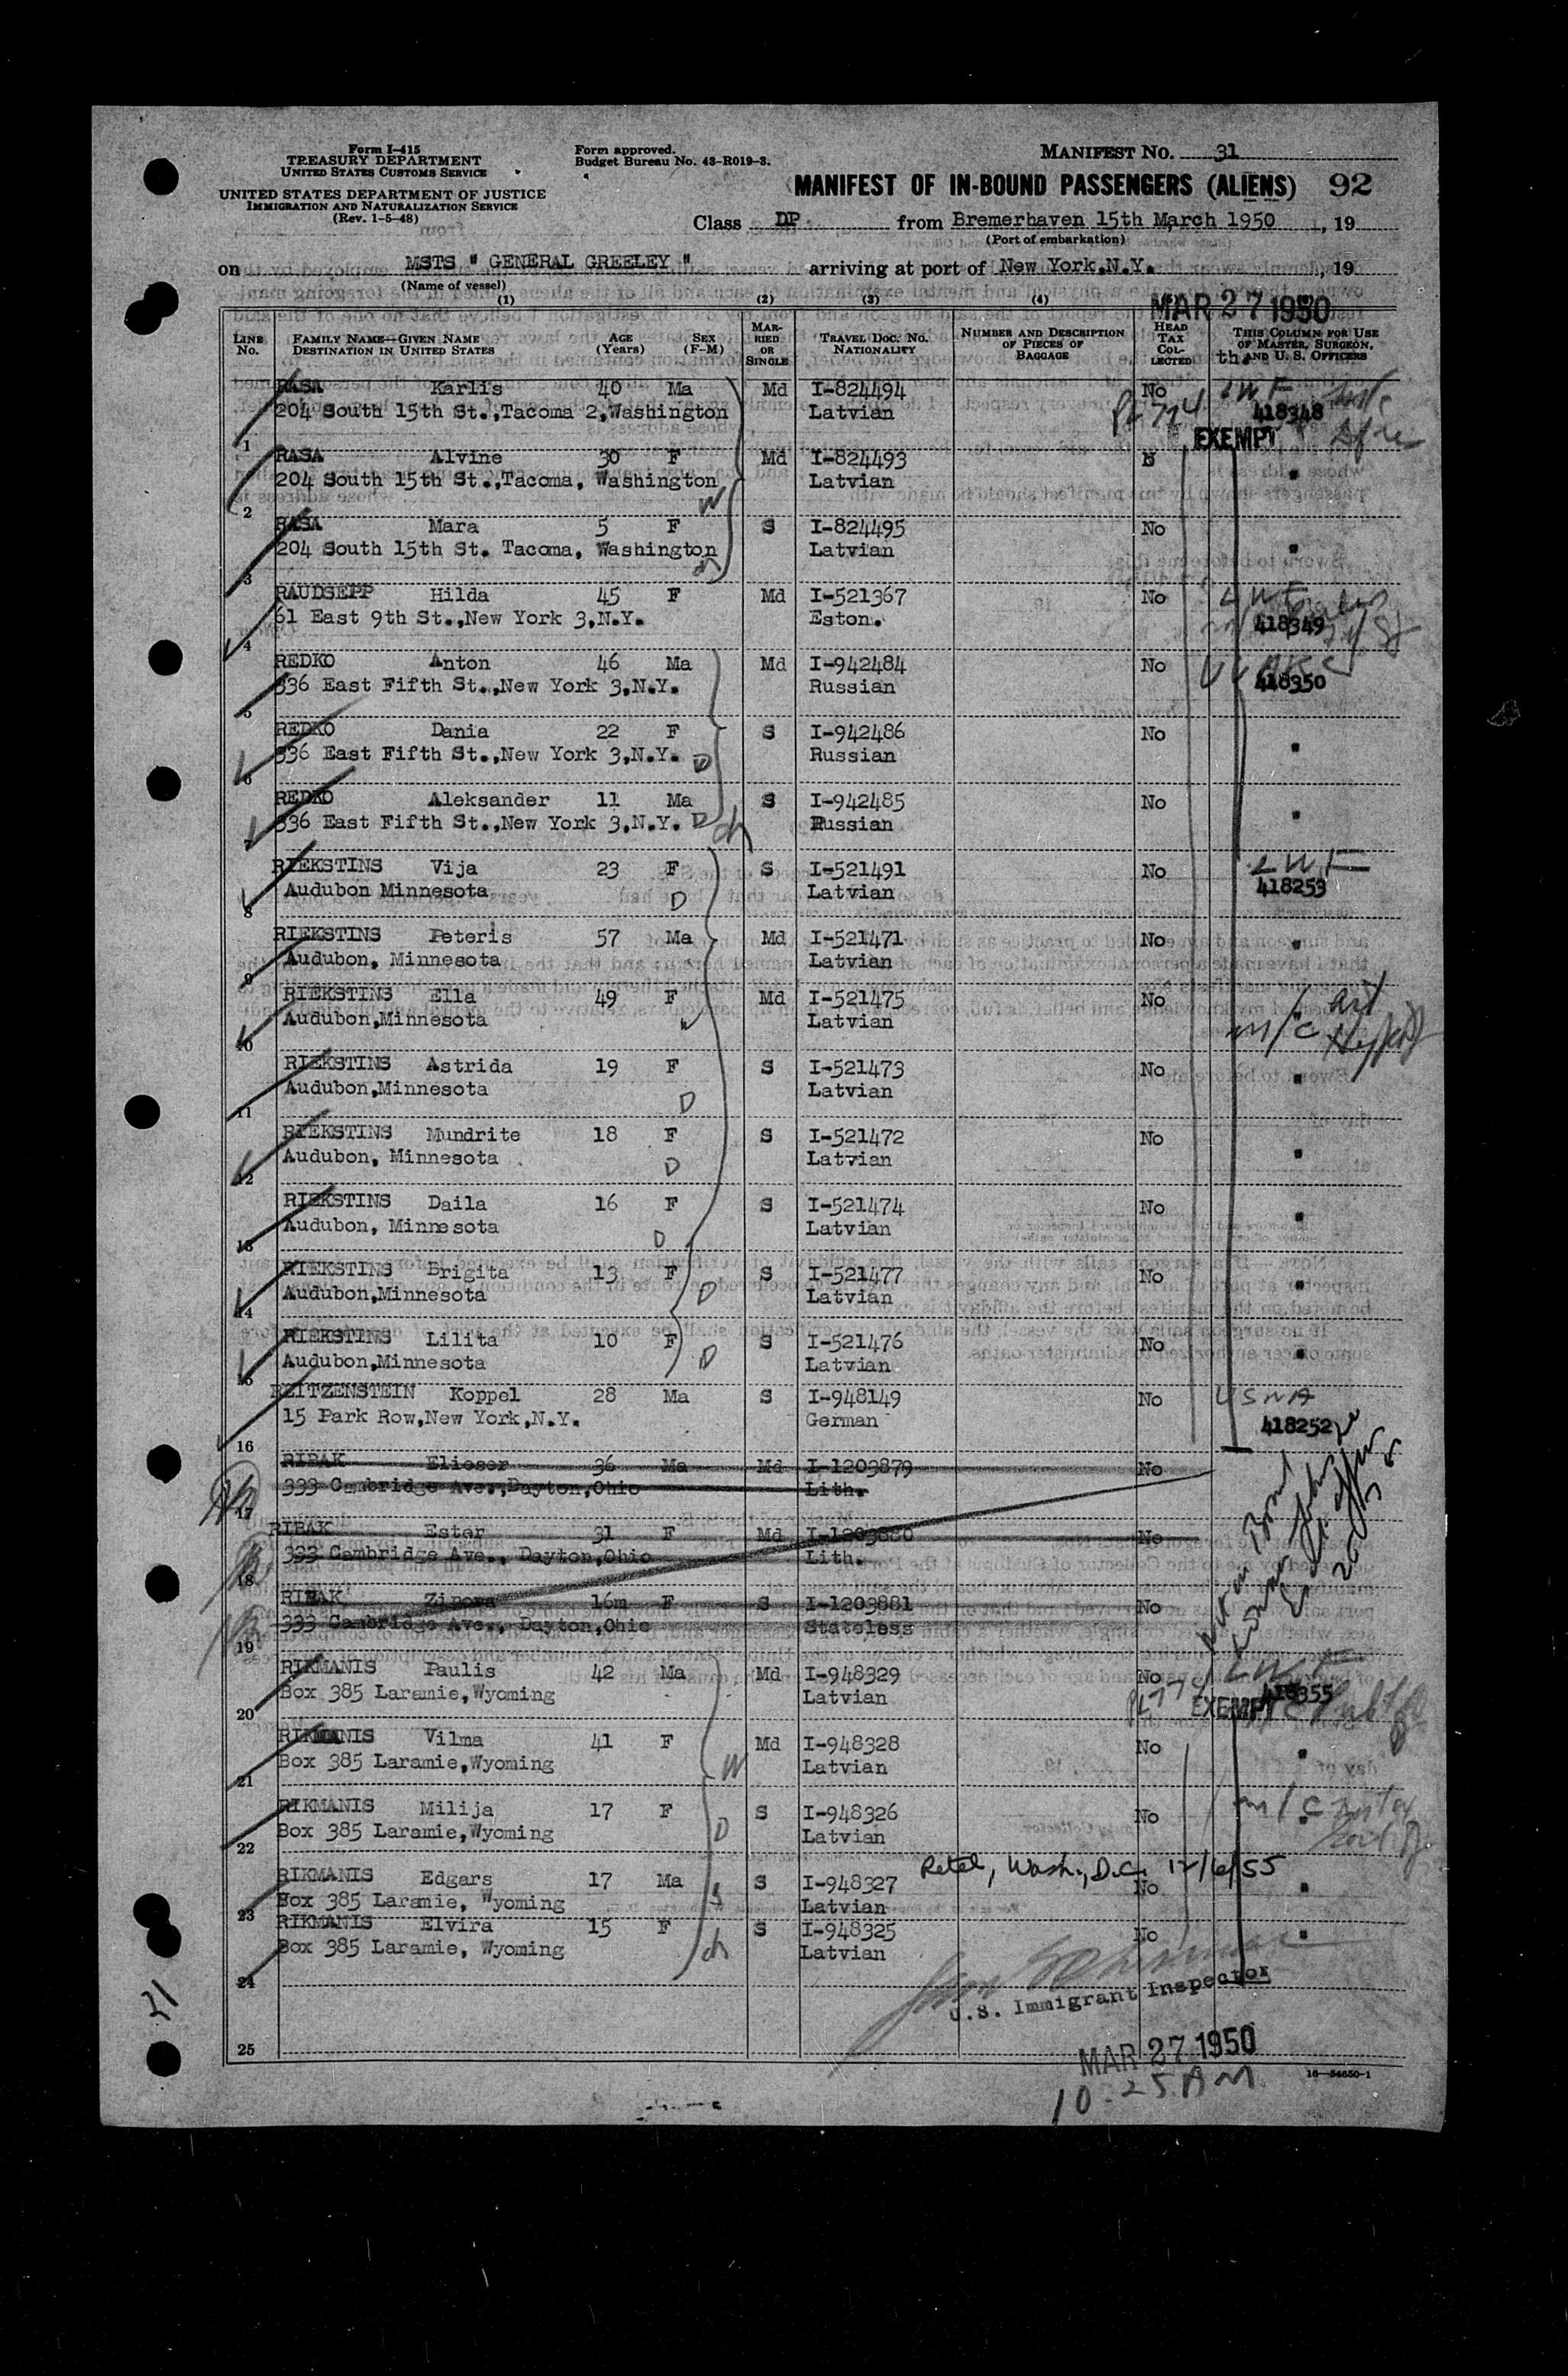 Form I-415
TREASURY DEPARTMENT
UNITED STATES CUSTOMS SERVICE
UNITED STATES DEPARTMENT OF JUSTICE
IMMIGRATION AND NATURALIZATION SERVICE
(Rev. 1-5-48)
Form approved.
Budget Bureau No. 43-R019-3.
MANIFEST NO. 31
MANIFEST OF IN-BOUND PASSENGERS (ALIENS) 92
Class DP from Bremerhaven 15th March 1950, 19
(Port of embarkation)
on MSTS " GENERAL GREELEY " arriving at port of New York,N.Y., 19
(Name of vessel)
MAR 27 1950
(1) (2) (3) (4)
LINE No. FAMILY NAME—GIVEN NAME DESTINATION IN UNITED STATES AGE (Years) SEX (F-M) MARRIED OR SINGLE TRAVEL DOC. NO. NATIONALITY NUMBER AND DESCRIPTION OF PIECES OF BAGGAGE HEAD TAX COLLECTED THIS COLUMN FOR USE OF MASTER, SURGEON, AND U. S. OFFICERS
RASA Karlis 40 Ma Md I-824494 No LWF
204 South 15th St.,Tacoma 2,Washington Latvian PL 774 418348
1 EXEMPT
RASA Alvine 30 F Md I-824493
204 South 15th St.,Tacoma, Washington Latvian "
2 W
RASA Mara 5 F S I-824495 No
204 South 15th St. Tacoma, Washington Latvian "
3
RAUDSEPP Hilda 45 F Md I-521367 No LWF
61 East 9th St.,New York 3,N.Y. Eston. 418349
4
REDKO Anton 46 Ma Md I-942484 No
336 East Fifth St.,New York 3,N.Y. Russian 418350
5
REDKO Dania 22 F S I-942486 No
336 East Fifth St.,New York 3,N.Y. D Russian "
6
REDKO Aleksander 11 Ma S I-942485 No
336 East Fifth St.,New York 3,N.Y. D Russian "
7
RIEKSTINS Vija 23 F S I-521491 No LWF
Audubon Minnesota D Latvian 418253
8
RIEKSTINS Peteris 57 Ma Md I-521471 No "
Audubon, Minnesota Latvian
9
RIEKSTINS Ella 49 F Md I-521475 No "
Audubon,Minnesota W Latvian m/c
10
RIEKSTINS Astrida 19 F S I-521473 No
Audubon,Minnesota D Latvian "
11
RIEKSTINS Mundrite 18 F S I-521472 No
Audubon, Minnesota D Latvian "
12
RIEKSTINS Daila 16 F S I-521474 No
Audubon, Minnesota D Latvian "
13
RIEKSTINS Brigita 13 F S I-521477 No
Audubon,Minnesota D Latvian "
14
RIEKSTINS Lilita 10 F S I-521476 No
Audubon,Minnesota D Latvian "
15
REITZENSTEIN Koppel 28 Ma S I-948149 No USNA
15 Park Row,New York,N.Y. German 418252
16
RIBAK Elieser 36 Ma Md I-1203879 No
333 Cambridge Ave.,Dayton,Ohio Lith.
17
RIBAK Ester 31 F Md I-1203880 No
333 Cambridge Ave., Dayton,Ohio Lith.
18
RIBAK Zipora 16m F S I-1203881 No
333 Cambridge Ave., Dayton,Ohio Stateless
19
RIKMANIS Paulis 42 Ma Md I-948329 No LWF
Box 385 Laramie,Wyoming Latvian PL 774 EXEMPT 418355
20
RIKMANIS Vilma 41 F Md I-948328 No
Box 385 Laramie,Wyoming W Latvian "
21
RIKMANIS Milija 17 F S I-948326 No m/c
Box 385 Laramie,Wyoming D Latvian "
22
Retel, Wash., D.C. 12/6/55
RIKMANIS Edgars 17 Ma S I-948327 No "
Box 385 Laramie, Wyoming S Latvian
23
RIKMANIS Elvira 15 F S I-948325 No "
Box 385 Laramie, Wyoming Latvian
24
U.S. Immigrant Inspector
25
MAR 27 1950
10.25 AM
16—54650-1
31